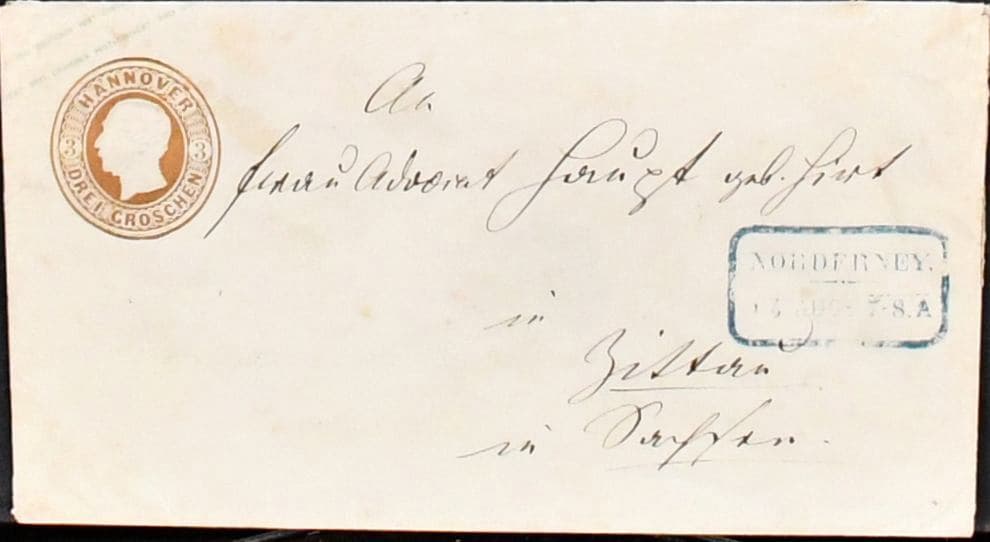 HANNOVER
3 3
DREI GROSCHEN
An
Frau Advocat Haupt geb. Hirt
NORDERNEY.
AUG 7-8.A
in
Zittau
in Sachsen.